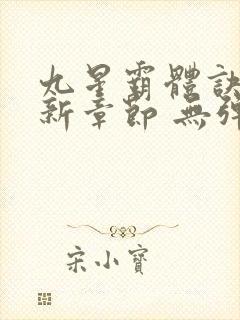 九星霸體訣
新章節 無彈
宋小寶